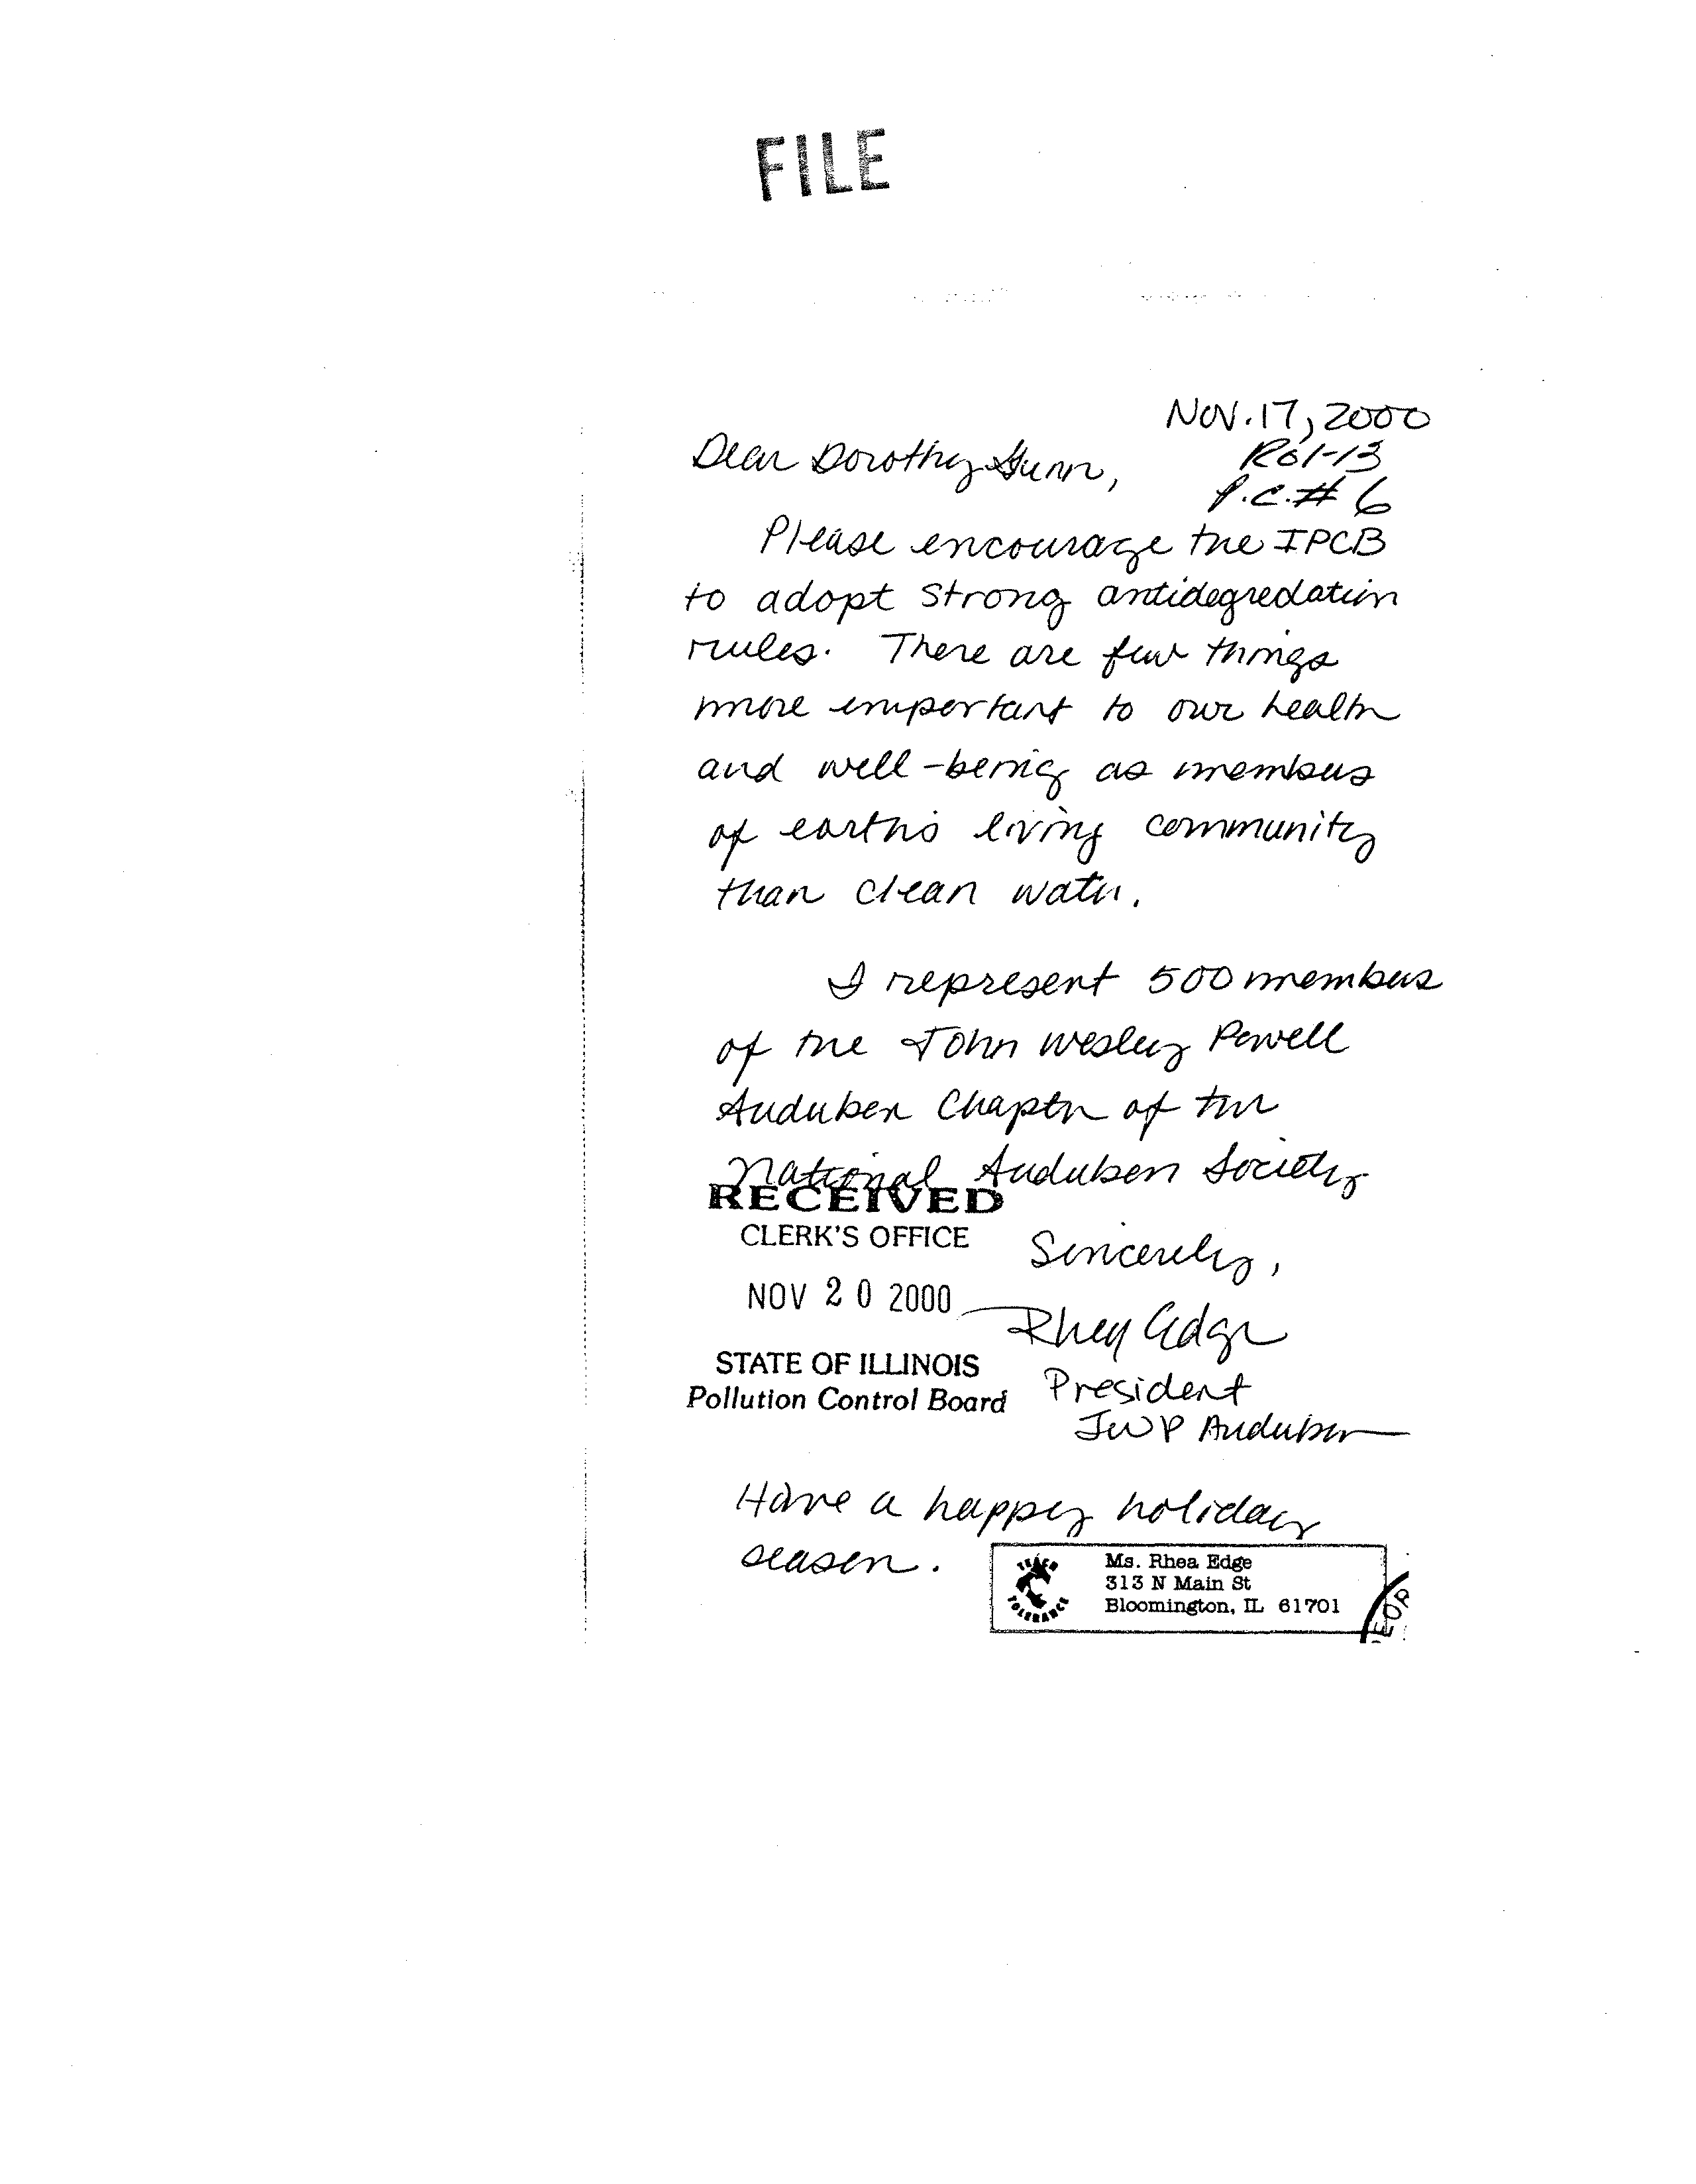 FILE
Nov. 17, 2000
Dear Dorothy Gunn,
R01-13
P.C. # 6
Please encourage the IPCB
to adopt strong antidegredation
rules. There are few things
more important to our health
and well-being as members
of earth's living community
than clean water.
I represent 500 members
of the John Wesley Powell
Audubon Chapter of the
National Audubon Society
RECEIVED
CLERK'S OFFICE
NOV 20 2000
STATE OF ILLINOIS
Pollution Control Board
Sincerely,
Rhea Edge
President
JWP Audubon
Have a happy holiday
season.
TEACH
TOLERANCE
Ms. Rhea Edge
313 N Main St
Bloomington, IL 61701